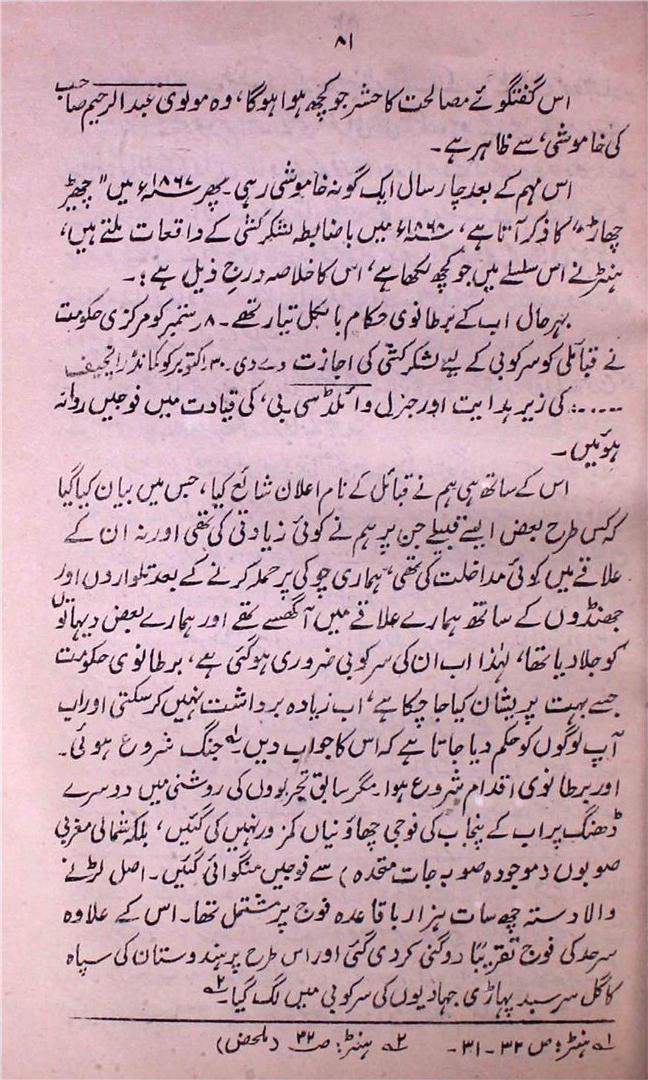 ۸۱
اس گفتگوئے مصالحت کا حشر جو کچھ ہوا ہوگا، وہ مولوی عبدالرحیم صاحب
کی خاموشی، سے ظاہر ہے۔
اس مہم کے بعد چار سال ایک گونہ خاموشی رہی۔ پھر ۱۸۶۷ء میں "چھیڑ
چھاڑ" کا ذکر آتا ہے، ۱۸۶۸ء میں باضابطہ لشکر کشی کے واقعات ملتے ہیں،
ہنٹر نے اس سلسلے میں جو کچھ لکھا ہے، اس کا خلاصہ درج ذیل ہے:۔
بہر حال اب کے برطانوی حکام بالکل تیار تھے۔ ۸ ستمبر کو مرکزی حکومت
نے قبائلی کو سرکوبی کے لیے لشکر کشی کی اجازت دے دی۔ ۳۰ اکتوبر کو کمانڈر انچیف
..... کی زیر ہدایت اور جنرل وائلڈ سی۔ بی، کی قیادت میں فوجیں روانہ
ہوئیں۔
اس کے ساتھ ہی ہم نے قبائل کے نام اعلان شائع کیا، جس میں بیان کیا گیا
کہ کس طرح بعض ایسے قبیلے جن پر ہم نے کوئی زیادتی کی تھی اور نہ ان کے
علاقے میں کوئی مداخلت کی تھی، ہماری چوکی پر حملہ کرنے کے بعد تلواروں اور
جھنڈوں کے ساتھ ہمارے علاقے میں آگھسے تھے اور ہمارے بعض دیہاتوں
کو جلا دیا تھا، لہٰذا اب ان کی سرکوبی ضروری ہو گئی ہے، برطانوی حکومت
جسے بہت پریشان کیا جا چکا ہے، اب زیادہ برداشت نہیں کر سکتی اور اب
آپ لوگوں کو حکم دیا جاتا ہے کہ اس کا جواب دیں ۱؎ جنگ شروع ہوئی۔
اور برطانوی اقدام شروع ہوا۔ مگر سابق تجربوں کی روشنی میں دوسرے
ڈھنگ پر اب کے پنجاب کی فوجی چھاؤنیاں کمزور نہیں کی گئیں، بلکہ شمالی مغربی
صوبوں (موجودہ صوبہ جات متحدہ) سے فوجیں منگوائی گئیں۔ اصل لڑنے
والا دستہ چھ سات ہزار باقاعدہ فوج پر مشتمل تھا۔ اس کے علاوہ
سرحد کی فوج تقریبًا دوگنی کر دی گئی اور اس طرح پر ہندوستان کی سپاہ
کا گل سرسبد پہاڑی جہادیوں کی سرکوبی میں لگ گیا۔ ۲؎
۱؎ ہنٹر: ص ۳۲-۳۱۔ ۲؎ ہنٹر: ص ۳۲ (ملخص)